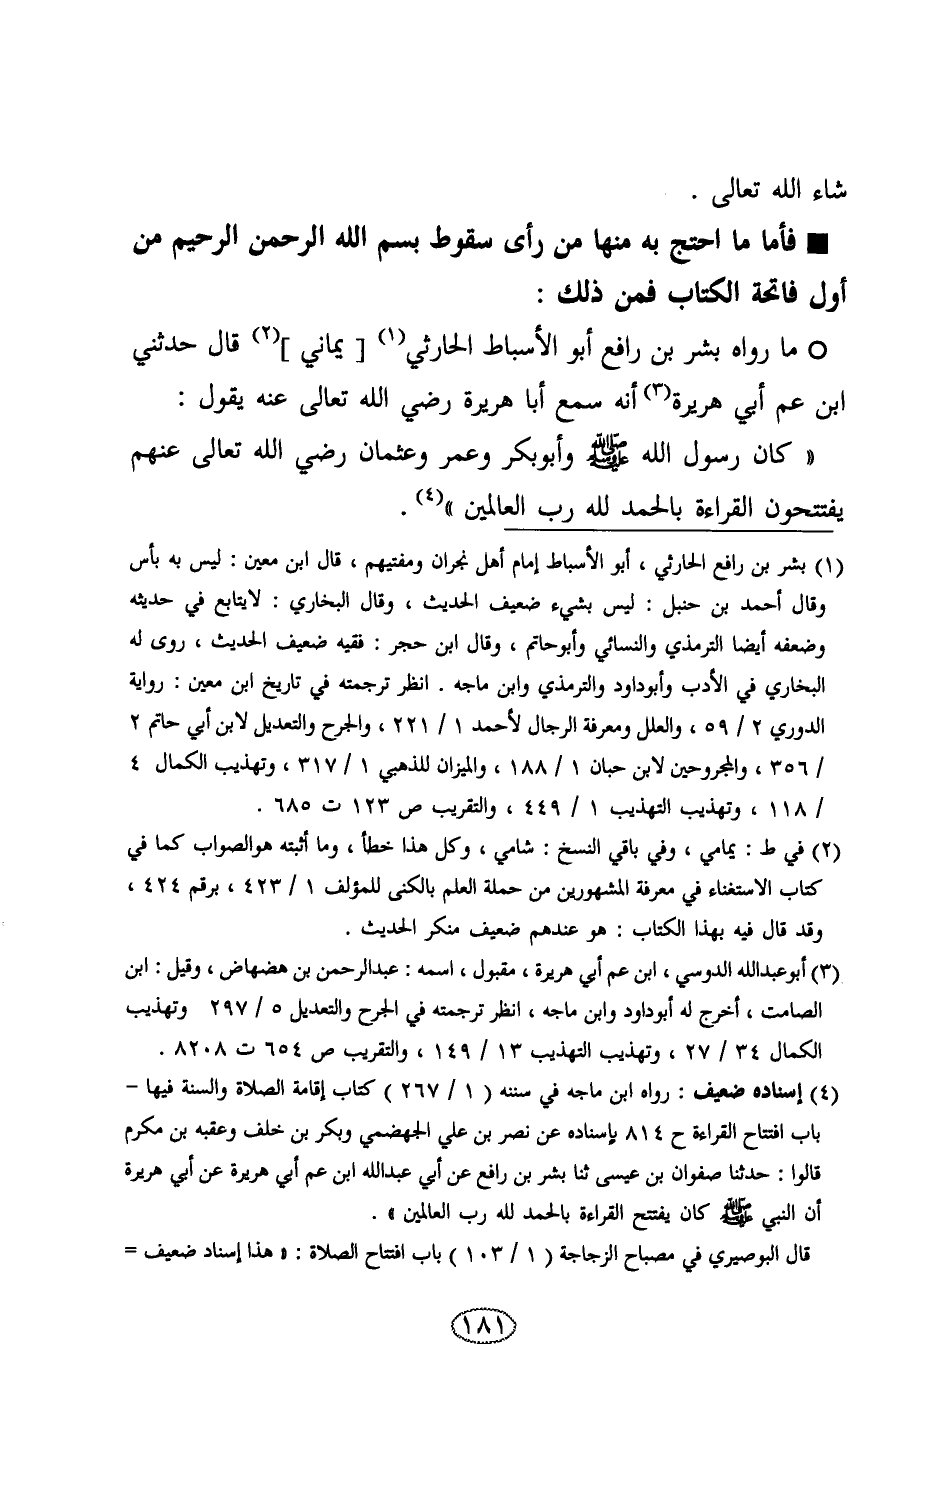 شاء الله تعالى .
■ فأما ما احتج به منها من رأى سقوط بسم الله الرحمن الرحيم من
أول فاتحة الكتاب فمن ذلك :
○ ما رواه بشر بن رافع أبو الأسباط الحارثي(١) [ يماني ](٢) قال حدثني
ابن عم أبي هريرة(٣) أنه سمع أبا هريرة رضي الله تعالى عنه يقول :
« كان رسول الله ﷺ وأبوبكر وعمر وعثمان رضي الله تعالى عنهم
يفتتحون القراءة بالحمد لله رب العالمين »(٤) .
(١) بشر بن رافع الحارثي ، أبو الأسباط إمام أهل نجران ومفتيهم ، قال ابن معين : ليس به بأس
وقال أحمد بن حنبل : ليس بشيء ضعيف الحديث ، وقال البخاري : لايتابع في حديثه
وضعفه أيضا الترمذي والنسائي وأبوحاتم ، وقال ابن حجر : فقيه ضعيف الحديث ، روى له
البخاري في الأدب وأبوداود والترمذي وابن ماجه . انظر ترجمته في تاريخ ابن معين : رواية
الدوري ٢ / ٥٩ ، والعلل ومعرفة الرجال لأحمد ١ / ٢٢١ ، والجرح والتعديل لابن أبي حاتم ٢
/ ٣٥٦ ، والمجروحين لابن حبان ١ / ١٨٨ ، والميزان للذهبي ١ / ٣١٧ ، وتهذيب الكمال ٤
/ ١١٨ ، وتهذيب التهذيب ١ / ٤٤٩ ، والتقريب ص ١٢٣ ت ٦٨٥ .
(٢) في ط : يمامي ، وفي باقي النسخ : شامي ، وكل هذا خطأ ، وما أثبته هوالصواب كما في
كتاب الاستغناء في معرفة المشهورين من حملة العلم بالكنى للمؤلف ١ / ٤٢٣ ، برقم ٤٢٤ ،
وقد قال فيه بهذا الكتاب : هو عندهم ضعيف منكر الحديث .
(٣) أبوعبدالله الدوسي ، ابن عم أبي هريرة ، مقبول ، اسمه : عبدالرحمن بن هضهاض ، وقيل : ابن
الصامت ، أخرج له أبوداود وابن ماجه ، انظر ترجمته في الجرح والتعديل ٥ / ٢٩٧ وتهذيب
الكمال ٣٤ / ٢٧ ، وتهذيب التهذيب ١٣ / ١٤٩ ، والتقريب ص ٦٥٤ ت ٨٢٠٨ .
(٤) إسناده ضعيف : رواه ابن ماجه في سننه ( ١ / ٢٦٧ ) كتاب إقامة الصلاة والسنة فيها –
باب افتتاح القراءة ح ٨١٤ بإسناده عن نصر بن علي الجهضمي وبكر بن خلف وعقبه بن مكرم
قالوا : حدثنا صفوان بن عيسى ثنا بشر بن رافع عن أبي عبدالله ابن عم أبي هريرة عن أبي هريرة
أن النبي ﷺ كان يفتتح القراءة بالحمد لله رب العالمين » .
قال البوصيري في مصباح الزجاجة ( ١ / ١٠٣ ) باب افتتاح الصلاة : « هذا إسناد ضعيف =
١٨١